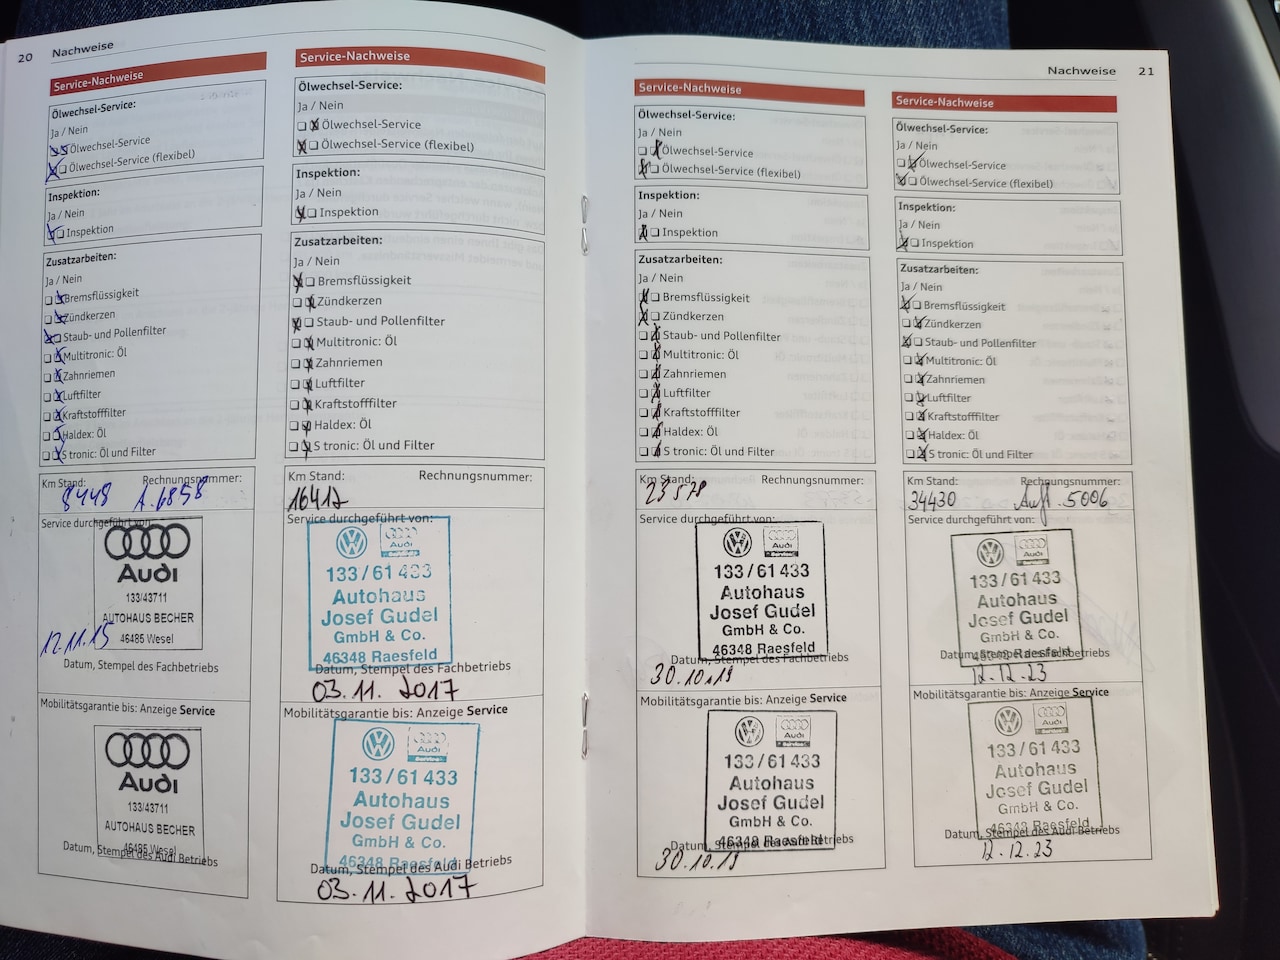 20 Nachweise
Service-Nachweise
Ölwechsel-Service:
Ja / Nein
Ölwechsel-Service
Ölwechsel-Service (flexibel)
Inspektion:
Ja / Nein
Inspektion
Zusatzarbeiten:
Ja / Nein
Bremsflüssigkeit
Zündkerzen
Staub- und Pollenfilter
Multitronic: Öl
Zahnriemen
Luftfilter
Kraftstofffilter
Haldex: Öl
S tronic: Öl und Filter
Km Stand: Rechnungsnummer:
8448 A.6858
Service durchgeführt von:
Audi
133/43711
AUTOHAUS BECHER
46485 Wesel
12.11.15
Datum, Stempel des Fachbetriebs
Mobilitätsgarantie bis: Anzeige Service
Audi
133/43711
AUTOHAUS BECHER
46485 Wesel
Datum, Stempel des Audi Betriebs
Service-Nachweise
Ölwechsel-Service:
Ja / Nein
Ölwechsel-Service
Ölwechsel-Service (flexibel)
Inspektion:
Ja / Nein
Inspektion
Zusatzarbeiten:
Ja / Nein
Bremsflüssigkeit
Zündkerzen
Staub- und Pollenfilter
Multitronic: Öl
Zahnriemen
Luftfilter
Kraftstofffilter
Haldex: Öl
S tronic: Öl und Filter
Km Stand: Rechnungsnummer:
16417
Service durchgeführt von:
Audi
133/61 433
Autohaus
Josef Gudel
GmbH & Co.
46348 Raesfeld
Datum, Stempel des Fachbetriebs
03.11.2017
Mobilitätsgarantie bis: Anzeige Service
Audi
Service
133/61 433
Autohaus
Josef Gudel
GmbH & Co.
46348 Raesfeld
Datum, Stempel des Audi Betriebs
03.11.2017
Nachweise 21
Service-Nachweise
Ölwechsel-Service:
Ja / Nein
Ölwechsel-Service
Ölwechsel-Service (flexibel)
Inspektion:
Ja / Nein
Inspektion
Zusatzarbeiten:
Ja / Nein
Bremsflüssigkeit
Zündkerzen
Staub- und Pollenfilter
Multitronic: Öl
Zahnriemen
Luftfilter
Kraftstofffilter
Haldex: Öl
S tronic: Öl und Filter
Km Stand: Rechnungsnummer:
23578
Service durchgeführt von:
Audi
Service
133/61 433
Autohaus
Josef Gudel
GmbH & Co.
46348 Raesfeld
Datum, Stempel des Fachbetriebs
30.10.19
Mobilitätsgarantie bis: Anzeige Service
Audi
Service
133/61 433
Autohaus
Josef Gudel
GmbH & Co.
46348 Raesfeld
Datum, Stempel des Audi Betriebs
30.10.19
Service-Nachweise
Ölwechsel-Service:
Ja / Nein
Ölwechsel-Service
Ölwechsel-Service (flexibel)
Inspektion:
Ja / Nein
Inspektion
Zusatzarbeiten:
Ja / Nein
Bremsflüssigkeit
Zündkerzen
Staub- und Pollenfilter
Multitronic: Öl
Zahnriemen
Luftfilter
Kraftstofffilter
Haldex: Öl
S tronic: Öl und Filter
Km Stand: Rechnungsnummer:
34430 Auft. 5006
Service durchgeführt von:
Audi
133/61 433
Autohaus
Josef Gudel
GmbH & Co.
46348 Raesfeld
Datum, Stempel des Fachbetriebs
12.12.23
Mobilitätsgarantie bis: Anzeige Service
Audi
133/61 433
Autohaus
Josef Gudel
GmbH & Co.
46348 Raesfeld
Datum, Stempel des Audi Betriebs
12.12.23